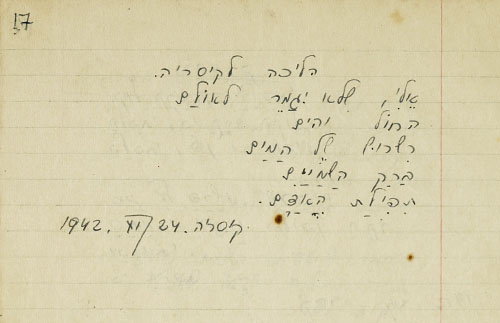 17
הליכה לקיסריה.
אֵלִי, שֶׁלֹּא יִגָּמֵר לְעוֹלָם
החול והים
רִשרוּש שֶל הַמַיִם
בְּרַק הַשָמַיִם
תְפִילַת הָאָדָם.
קיסריה. 24 / XI. 1942